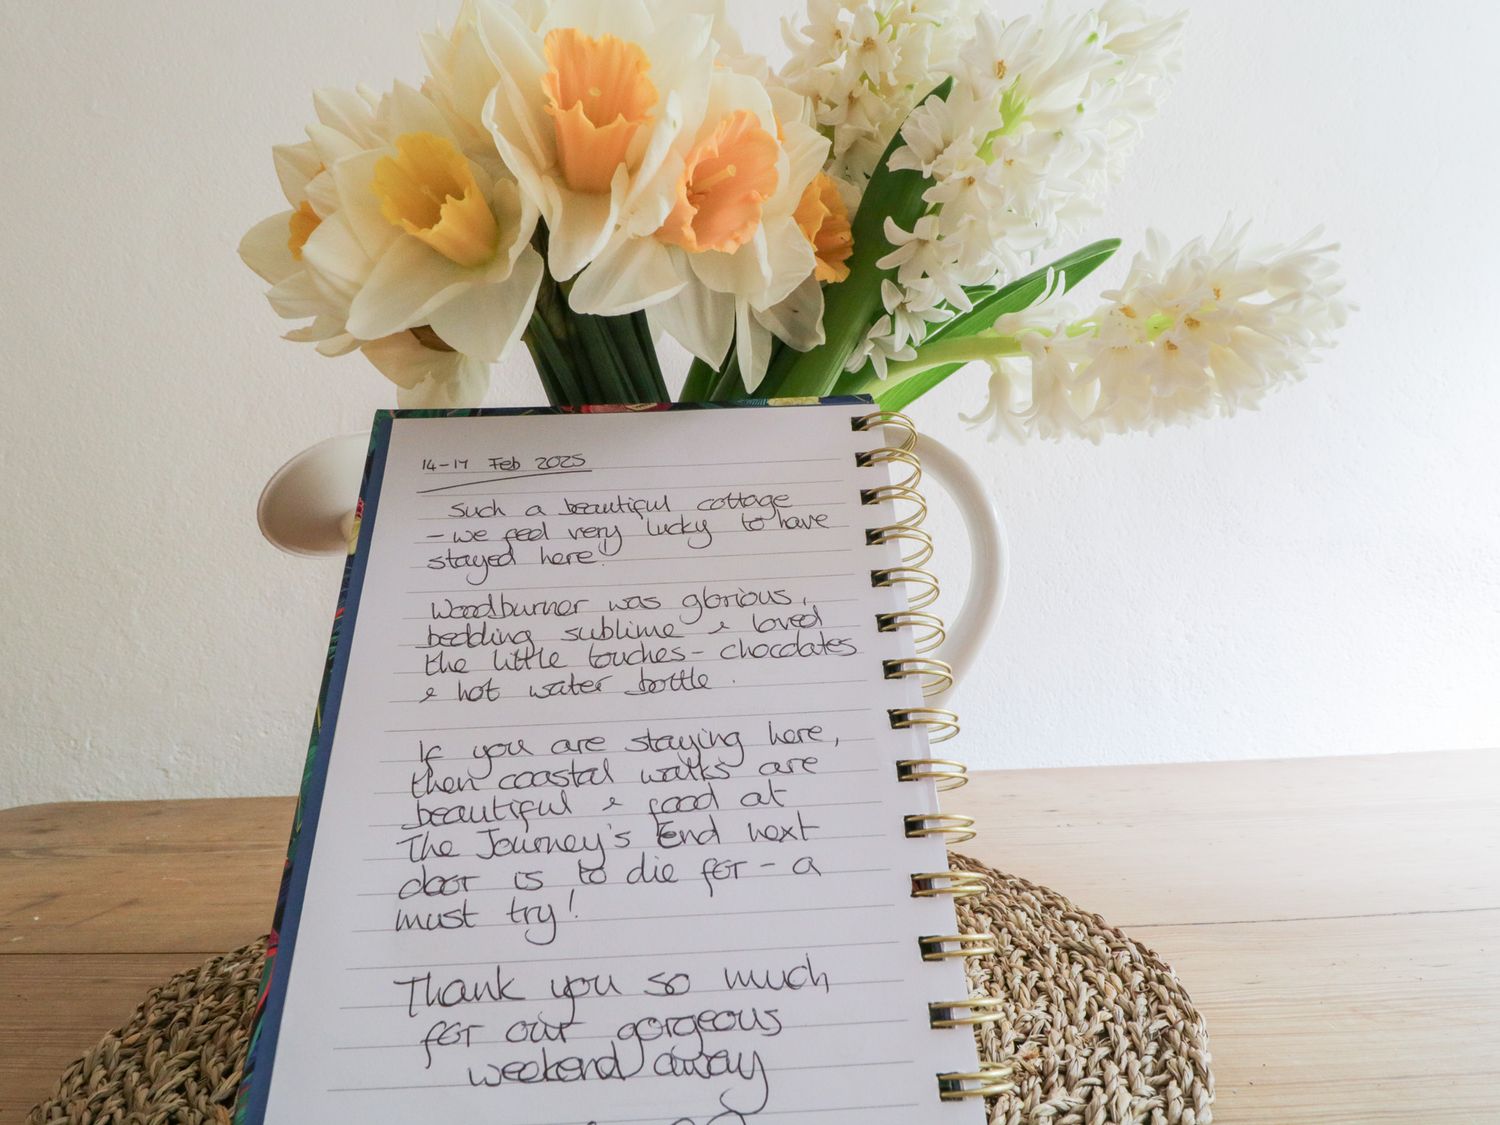 14-17 Feb 2025
Such a beautiful cottage
- we feel very lucky to have
stayed here!
Woodburner was glorious,
bedding sublime & loved
the little touches - chocolates
& hot water bottle.
If you are staying here,
then coastal walks are
beautiful & food at
The Journey's End next
door is to die for - a
must try!
Thank you so much
for our gorgeous
weekend away